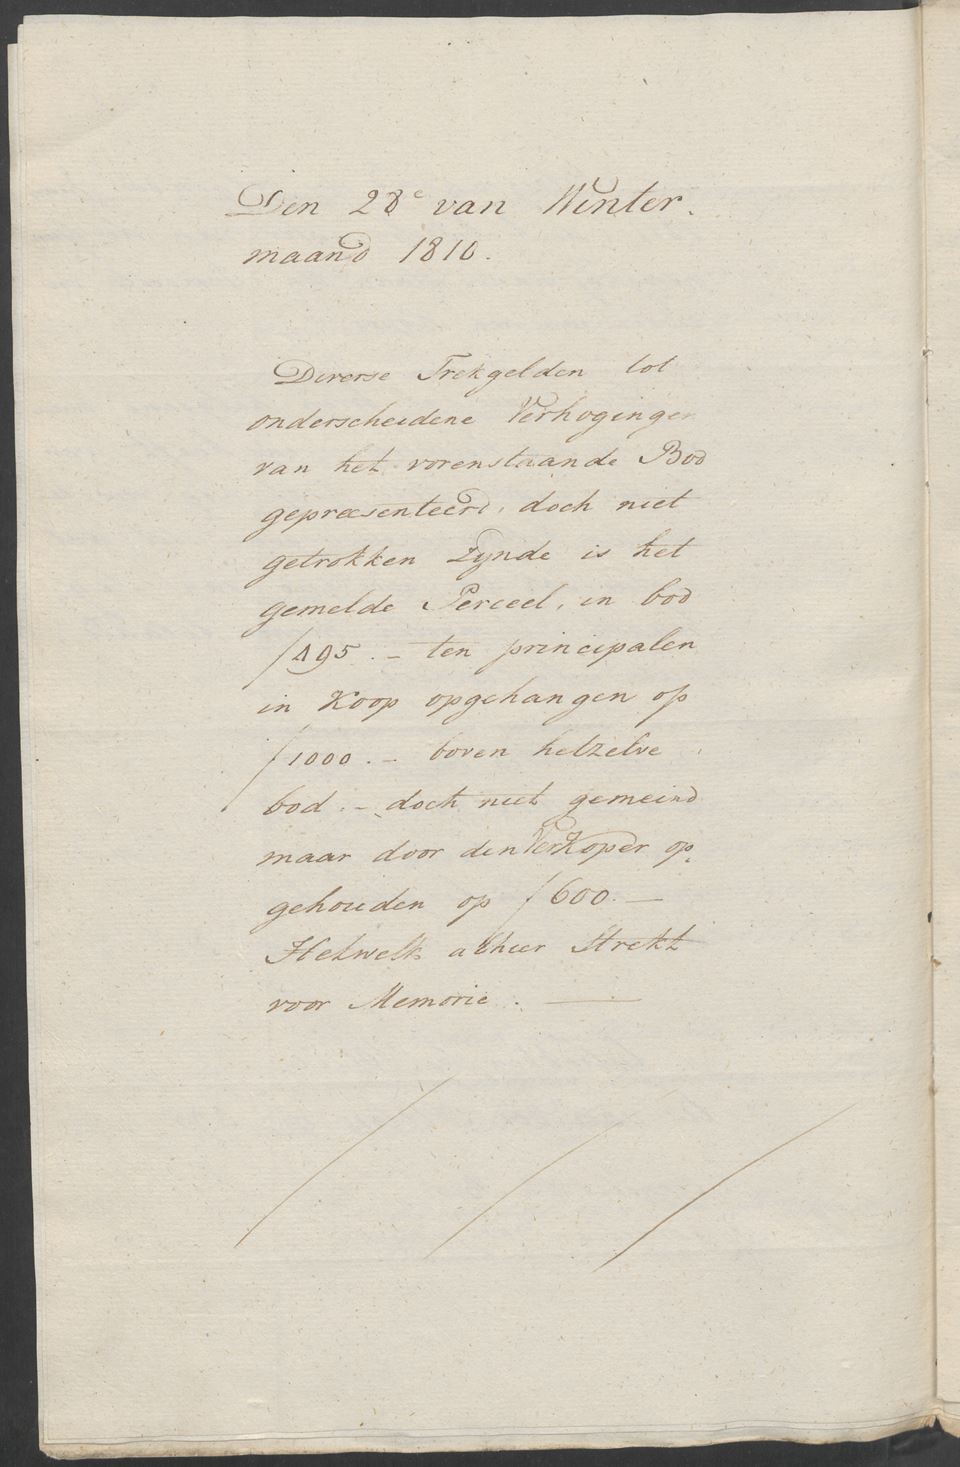 Den 28e van Winter.
maand 1810.
Diverse Trekgelden tot
onderscheidene Verhogingen
van het vorenstaande Bod
gepræsenteerd, doch niet
getrokken Zynde is het
gemelde Perceel, in bod
ƒ 495.- ten principalen
in Koop opgehangen op
ƒ 1000.- boven hetzelve
bod.- doch niet gemeind
maar door den Verkoper op,
gehouden op ƒ 600.-
Hetwelk alhier Strekt
voor Memorie.-